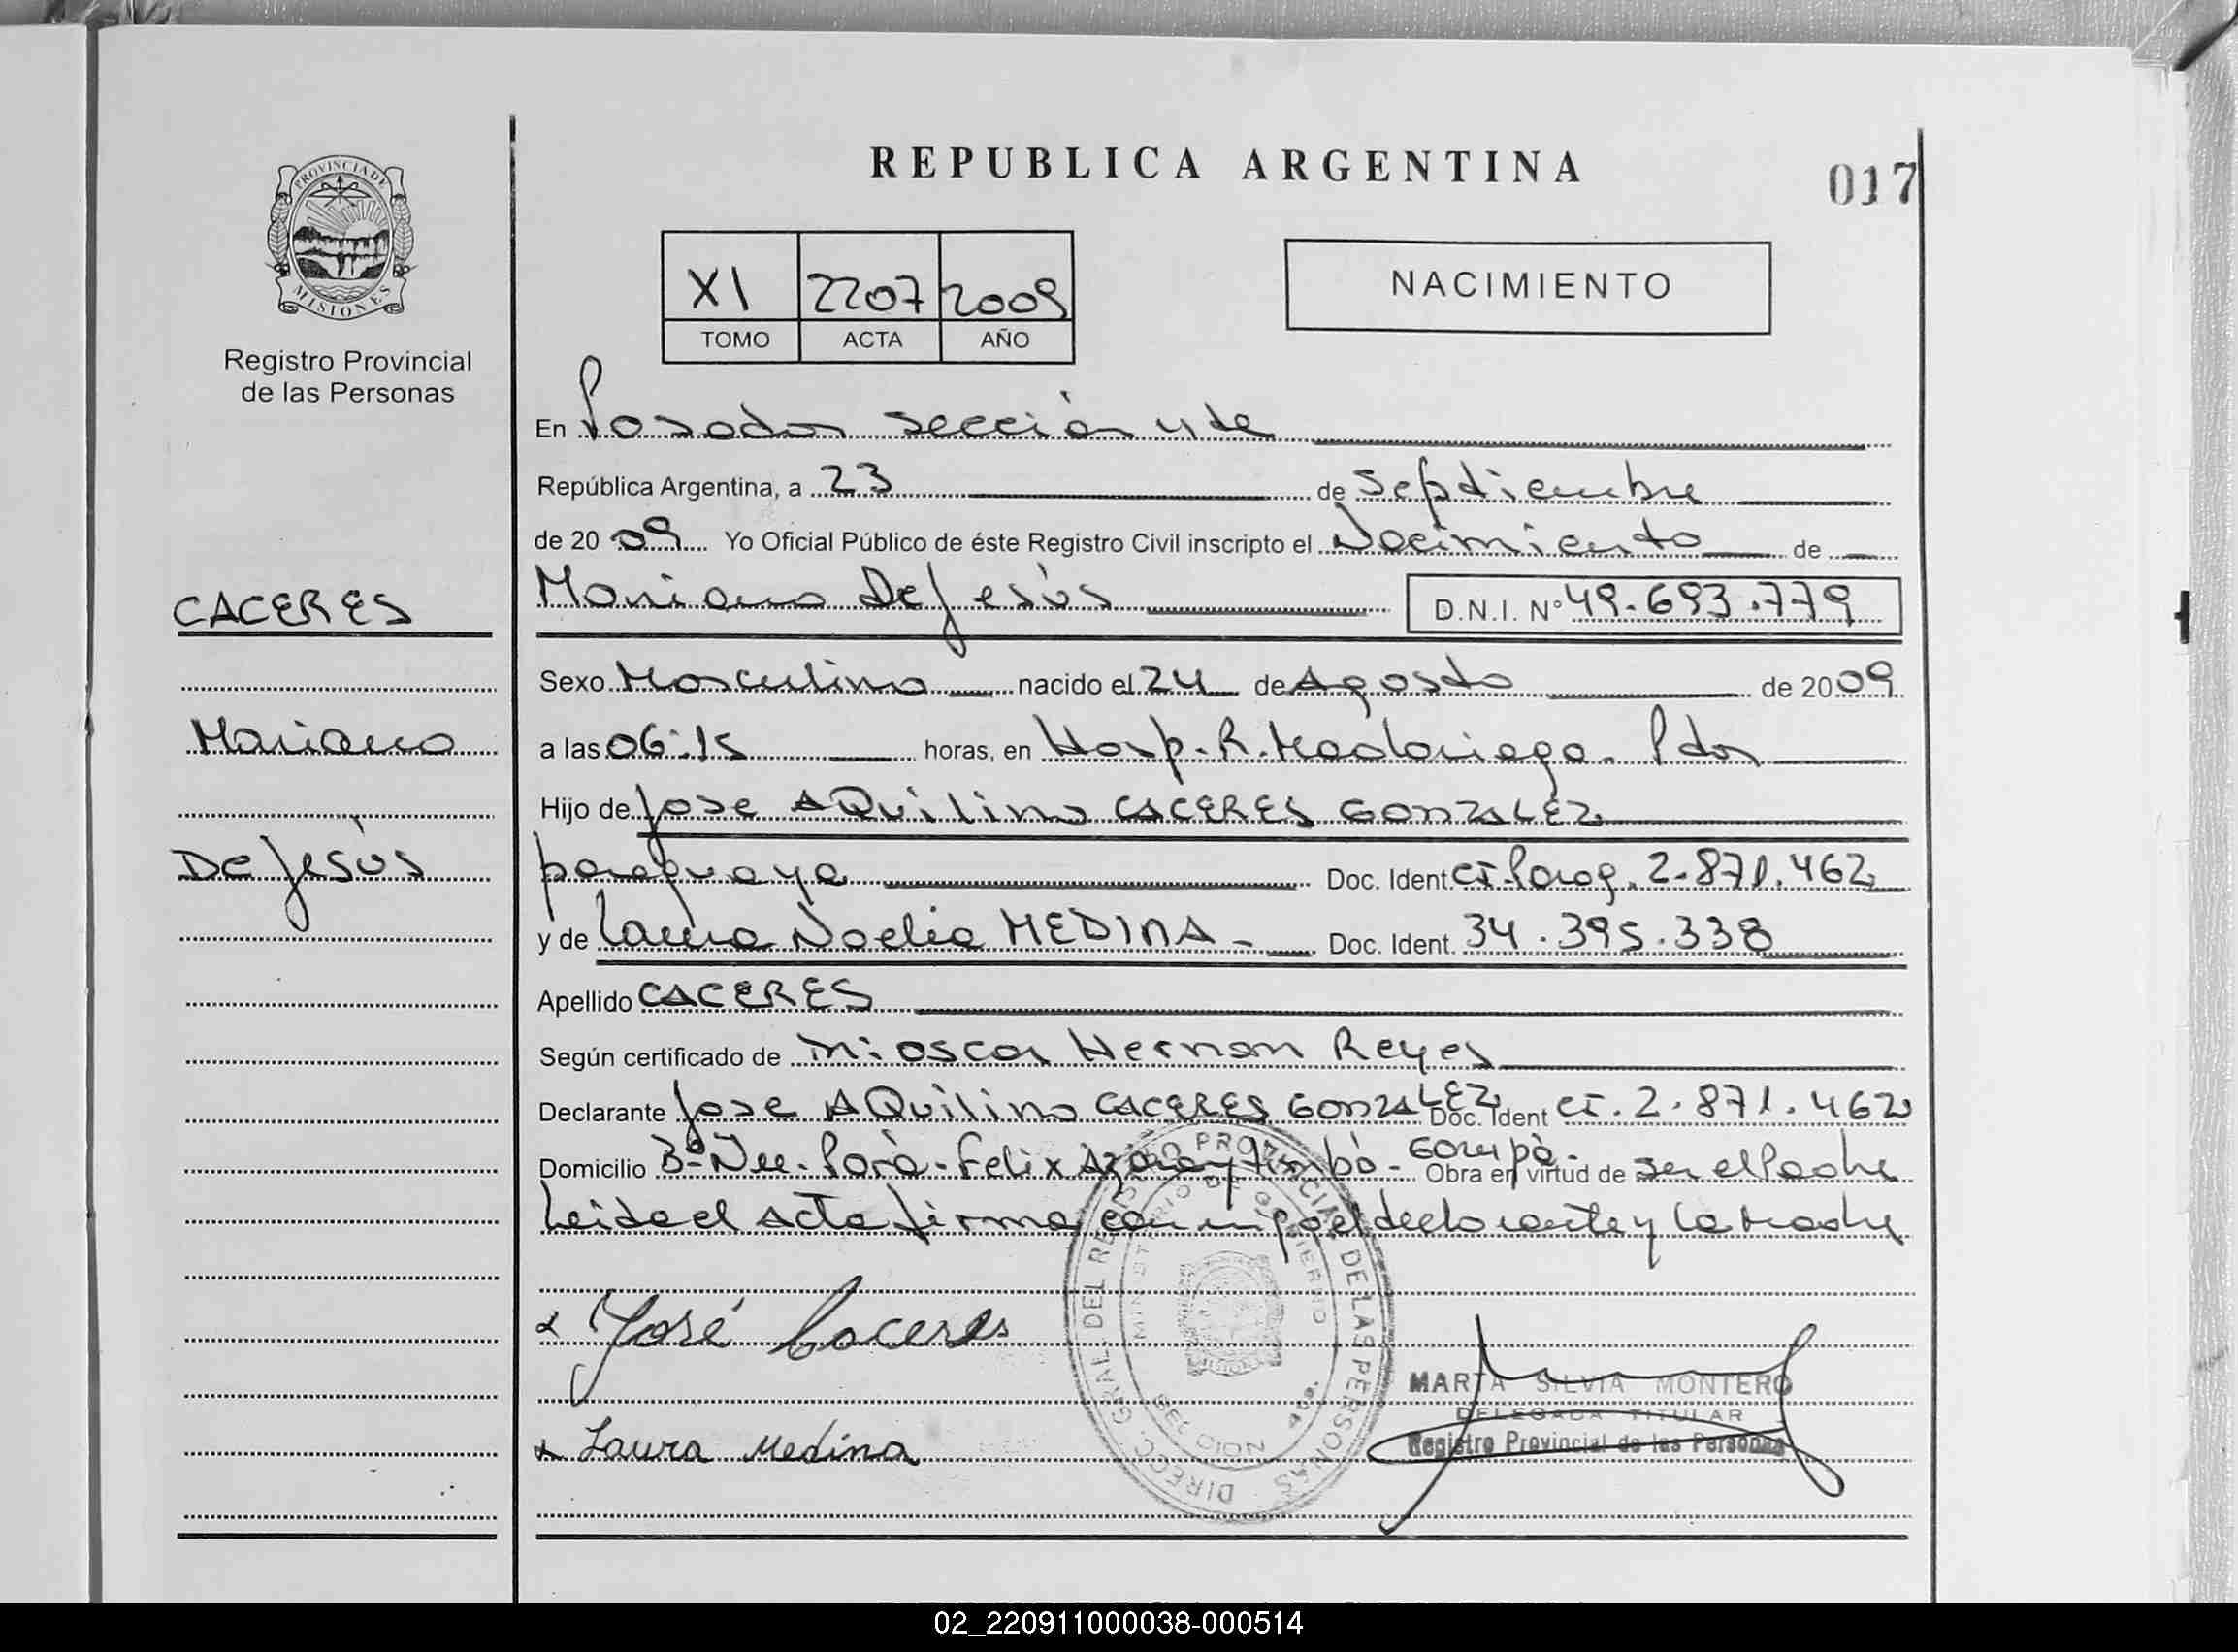 REPUBLICA ARGENTINA
017
PROVINCIA DE
MISIONES
Registro Provincial
de las Personas
XI 2207 2009
TOMO ACTA AÑO
NACIMIENTO
En Posadas sección 4ta
República Argentina, a 23 de Septiembre
de 2009 Yo Oficial Público de éste Registro Civil inscripto el Nacimiento de
CACERES
Mariano De Jesús D.N.I. Nº 49.693.779
Sexo Masculino nacido el 24 de Agosto de 2009
Mariano
a las 06:15 horas, en Hosp. R. Madariaga. Pdas
Hijo de Jose AQuilino CACERES GONZALEZ
De Jesús
paraguaya Doc. Ident. CI. Parag. 2.871.462
y de Laura Noelia MEDINA - Doc. Ident. 34.395.338
Apellido CACERES
Según certificado de m: oscar Hernan Reyes
Declarante Jose AQuilino CACERES GONZALEZ Doc. Ident CI. 2.871.462
Domicilio Bº Ñu Porá - Felix Azara y Timbó - Garupá - Obra en virtud de ser el Padre
Leida el Acta firma conmigo el declarante y la Madre
José Caceres
Laura Medina
DIRECC. GRAL. DEL REGISTRO PROVINCIAL DE LAS PERSONAS
MINISTERIO DE GOBIERNO
MARTA SILVIA MONTERO
DELEGADA TITULAR
Registro Provincial de las Personas
02_220911000038-000514